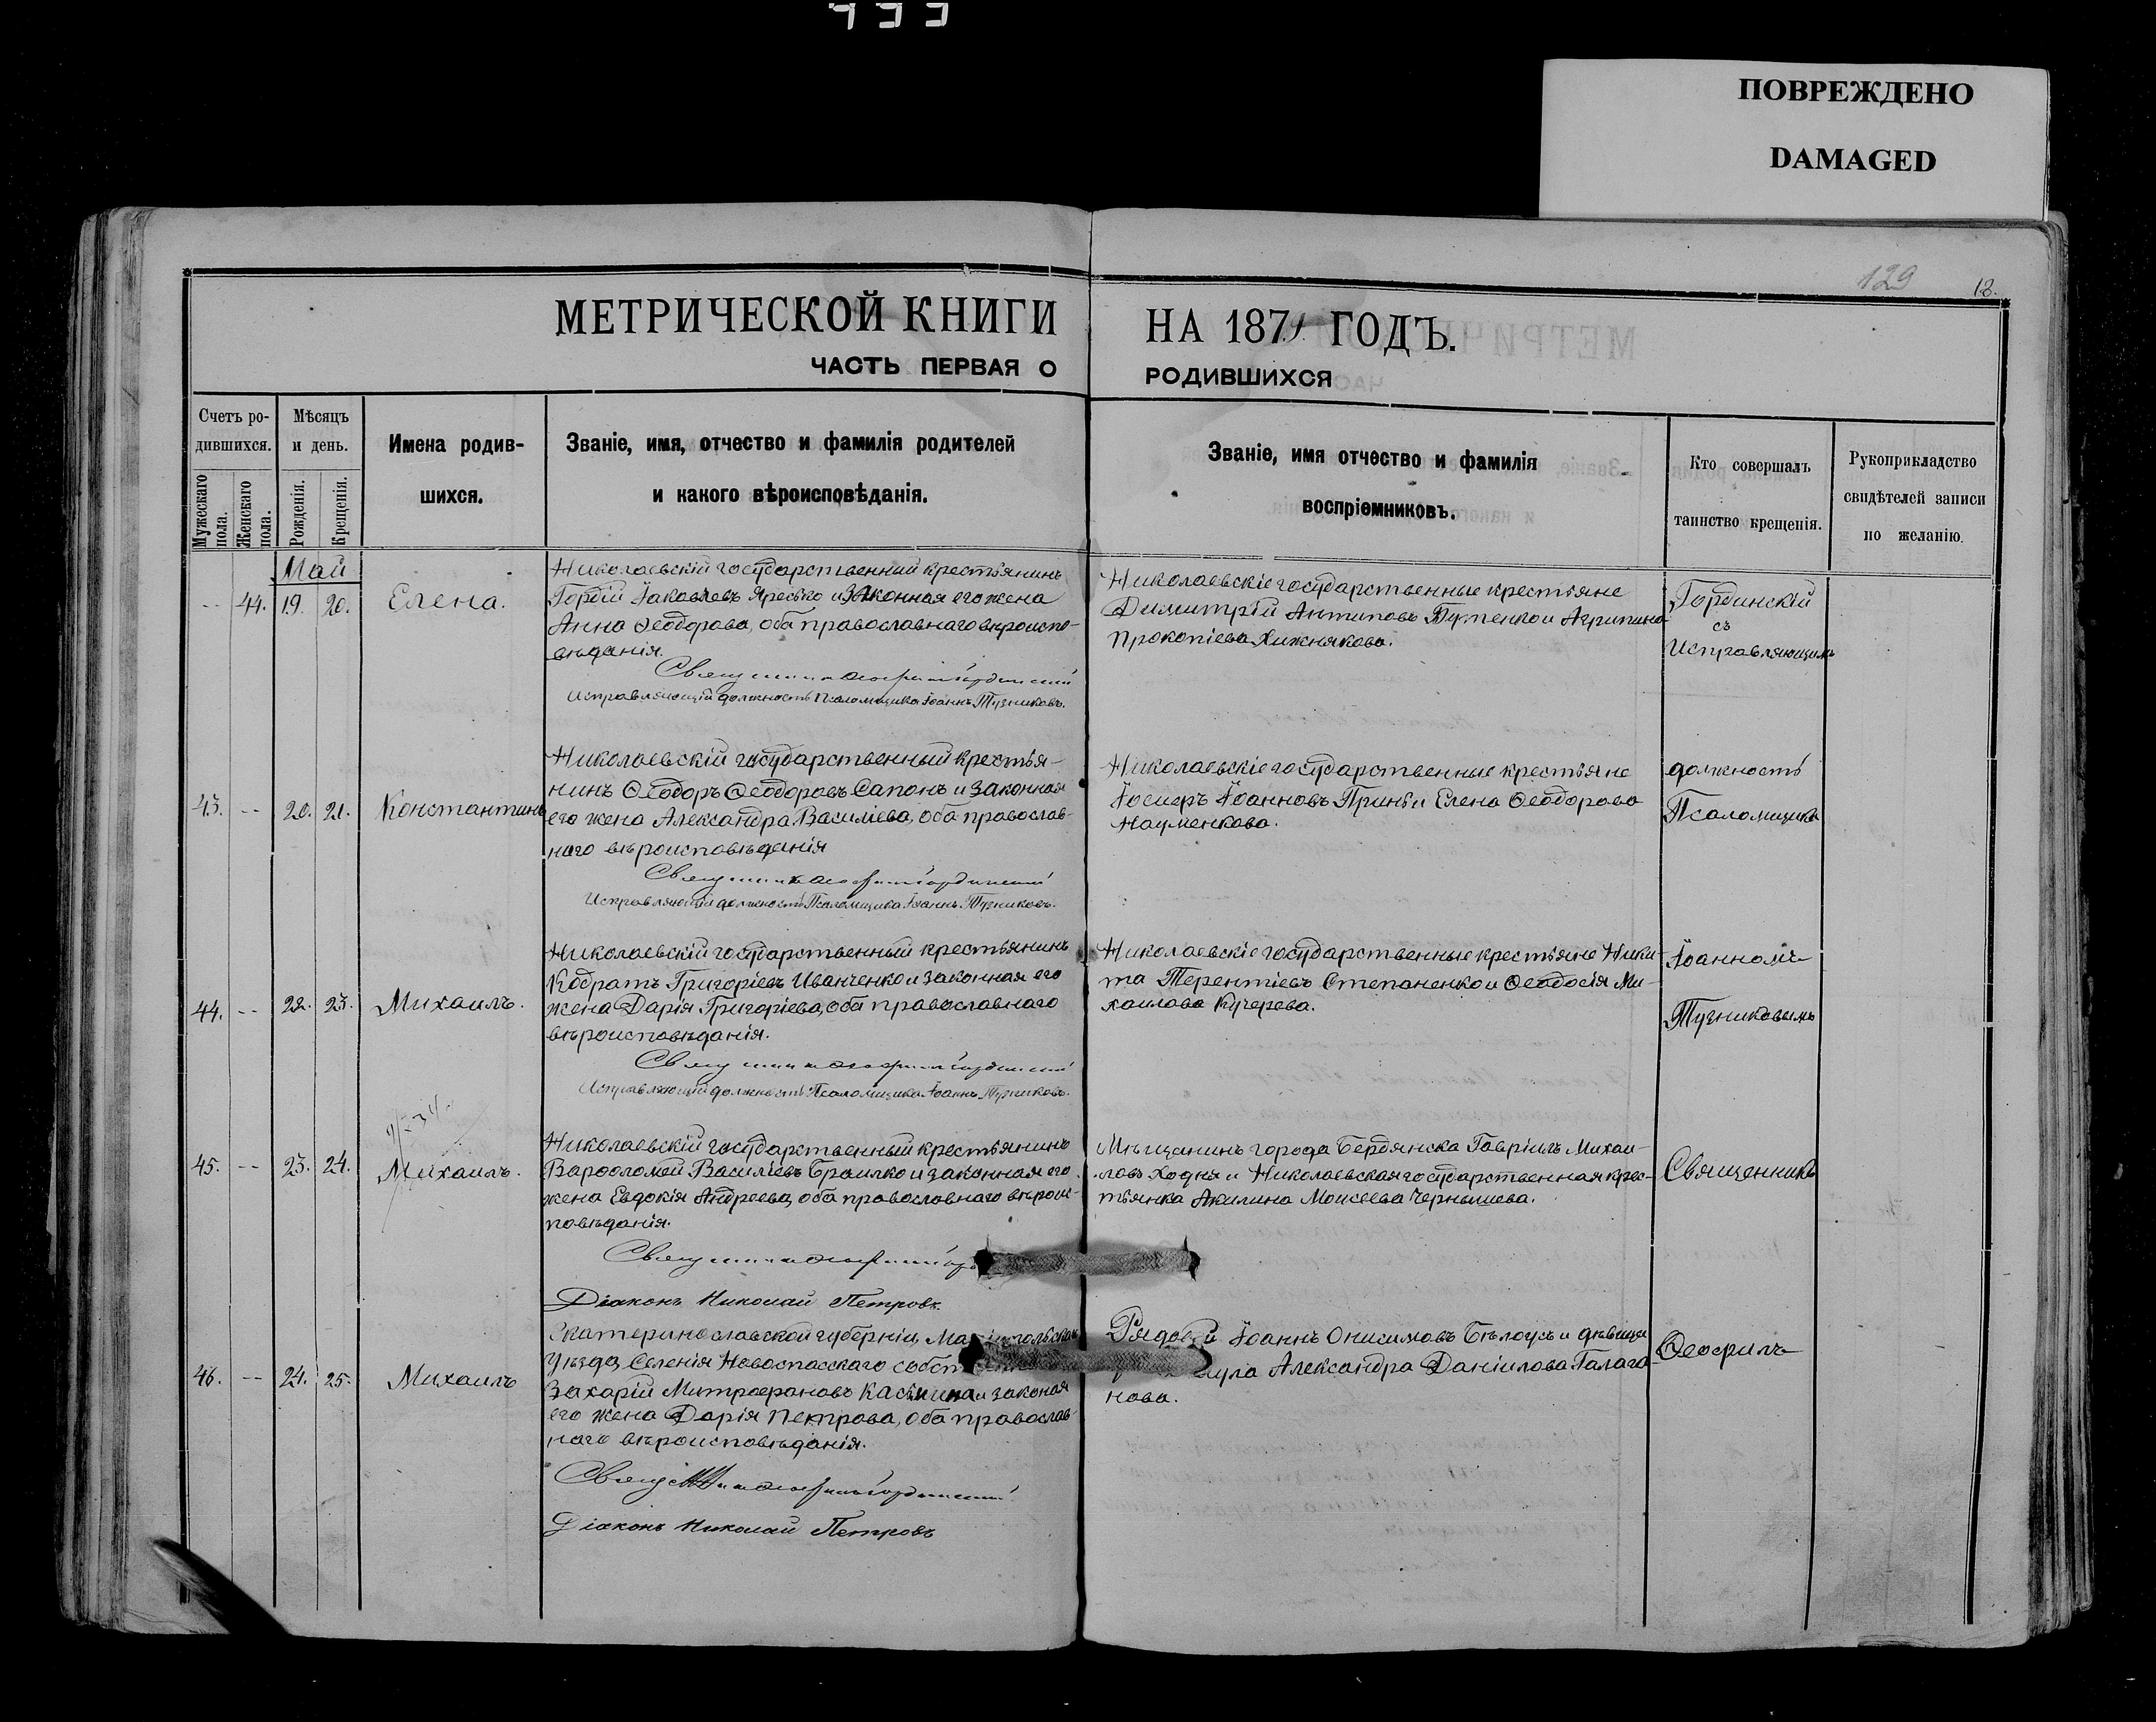 ПОВРЕЖДЕНО
DAMAGED
129
МЕТРИЧЕСКОЙ КНИГИ НА 1871 ГОДЪ.
ЧАСТЬ ПЕРВАЯ О РОДИВШИХСЯ
Счетъ ро-
дившихся.
Мужескаго
пола.
Женскаго
пола.
Мѣсяцъ
и день.
Рожденія.
Крещенія.
Имена родив-
шихся.
Званіе, имя, отчество и фамилія родителей
и какого вѣроисповѣданія.
Званіе, имя отчество и фамилія
воспріемниковъ.
Кто совершалъ
таинство крещенія.
Рукоприкладство
свидѣтелей записи
по желанію.
Май
-- 44. 19. 20. Елена.
Николаевскій государственный крестьянинъ
Гордій Іаковлевъ Яресько и законная его жена
Анна Ѳеодорова, оба православнаго вѣроиспо-
вѣданія.
Священникъ Ѳеофилъ Гординскій
Исправляющій должность Псаломщика Іоаннъ Тузниковъ.
Николаевскіе государственные крестьяне
Димитрій Антиповъ Бутенко и Агрипина
Прокопіева Хижнякова.
Гординскій
съ
Исправляющимъ
43. -- 20. 21. Константинъ
Николаевскій государственный крестья-
нинъ Ѳеодоръ Ѳеодоровъ Сапонъ и законная
его жена Александра Василіева, оба православ-
наго вѣроисповѣданія
Священникъ Ѳеофилъ Гординскій
Исправляющій должность Псаломщика Іоаннъ Тузниковъ.
Николаевскіе государственные крестьяне
Іосифъ Іоанновъ и Елена Ѳеодорова
Науменкова.
должность
Псаломщика
44. -- 22. 23. Михаилъ.
Николаевскій государственный крестьянинъ
Кодратъ Григоріевъ Иванченко и законная его
жена Дарія Григоріева, оба православнаго
вѣроисповѣданія.
Священникъ Ѳеофилъ Гординскій
Исправляющій должность Псаломщика Іоаннъ Тузниковъ.
Николаевскіе государственные крестьяне Ники-
та Терентіевъ Степаненко и Ѳеодосія Ми-
хаилова Кучерева.
Іоанномъ
Тузниковымъ
45. -- 23. 24. Михаилъ.
Николаевскій государственный крестьянинъ
Варѳоломей Василіевъ Браилко и законная его
жена Евдокія Андреева, оба православнаго вѣроис-
повѣданія.
Священникъ Ѳеофилъ
Діаконъ Николай Петровъ
Мѣщанинъ города Бердянска Гавріилъ Михаи-
ловъ Ходня и Николаевская государственная крес-
тьянка Акилина Моисеева Чернышева.
Священникъ
46. -- 24. 25. Михаилъ
Екатеринославской губерніи,
Уѣзда, Селенія Новоспасскаго
Захарій Митрофановъ и законая
его жена Дарія Петрова, оба православ-
наго вѣроисповѣданія.
Священникъ Ѳеофилъ Гординскій
Діаконъ Николай Петровъ
Рядовой Іоаннъ Онисимовъ Бѣлоусъ и дѣвица
Александра Даніилова Галага-
нова.
Ѳеофилъ